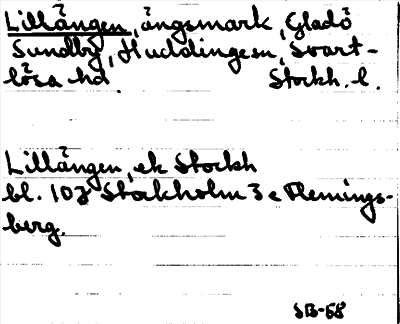 Lillången, ängsmark, Gladö
Sundby, Huddinge sn, Svart-
lösa hd. Stockh. l.
Lillången, ek Stockh
bl. 10J Stockholm 3 e Flemings-
berg.
SB-68